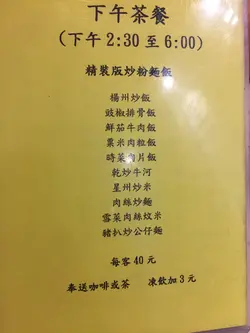 下午茶餐
(下午 2:30 至 6:00)
精裝版炒粉麵飯
楊州炒飯
豉椒排骨飯
鮮茄牛肉飯
粟米肉粒飯
時菜肉片飯
乾炒牛河
星州炒米
肉絲炒麵
雪菜肉絲炆米
豬扒炒公仔麵
每客 40 元
奉送咖啡或茶 凍飲加 3 元